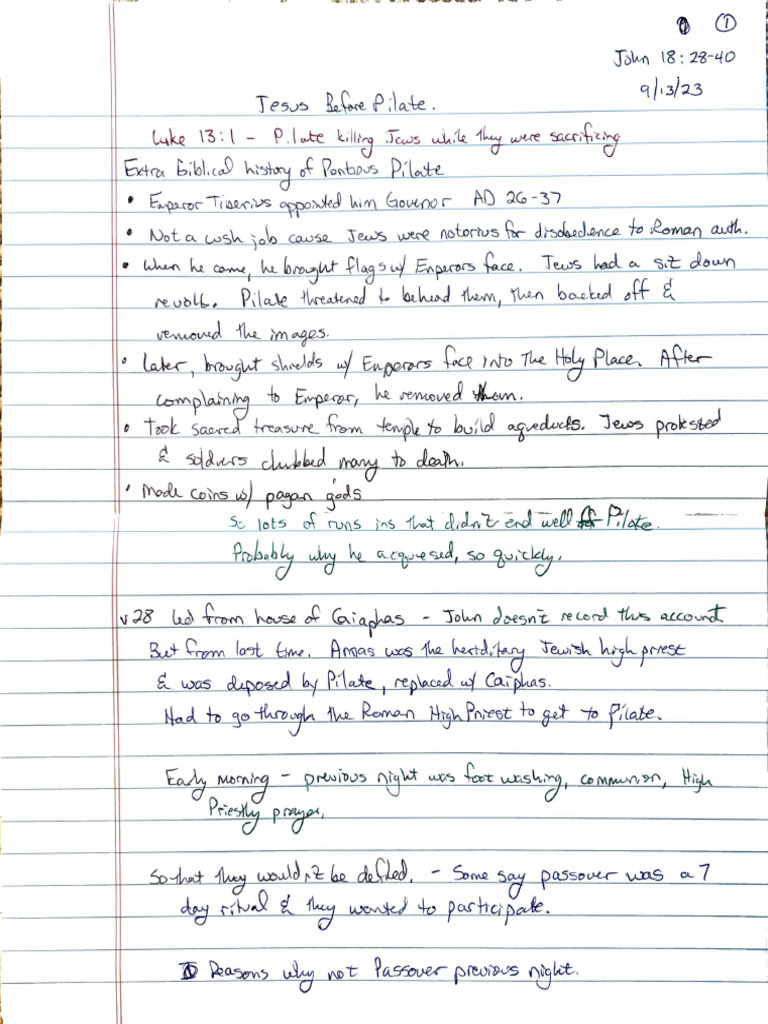 ①
John 18:28-40
9/13/23
Jesus Before Pilate.
Luke 13:1 - Pilate killing Jews while they were sacrificing
Extra Biblical history of Pontious Pilate
• Emperor Tiberius appointed him Govenor AD 26-37
• Not a cush job cause Jews were notorius for disobedience to Roman auth.
• When he came, he brought flags w/ Emperors face. Jews had a sit down
revolt. Pilate threatened to behead them, then backed off &
removed the images.
• Later, brought shields w/ Emperors face into The Holy Place. After
complaining to Emperor, he removed them.
• Took sacred treasure from temple to build aqueducts. Jews protested
& soldiers clubbed many to death.
• Made coins w/ pagan gods
So lots of runs ins that didn't end well Pilate.
Probably why he acquesed, so quickly.
v28 Led from house of Caiaphas - John doesn't record this account.
But from last time. Annas was the heriditary Jewish high priest
& was deposed by Pilate, replaced w/ Caiphas.
Had to go through the Roman High Priest to get to Pilate.
Early morning - previous night was foot washing, communion, High
Priestly prayer.
So that they wouldn't be defiled. - Some say passover was a 7
day ritual & they wanted to participate.
Reasons why not Passover previous night.